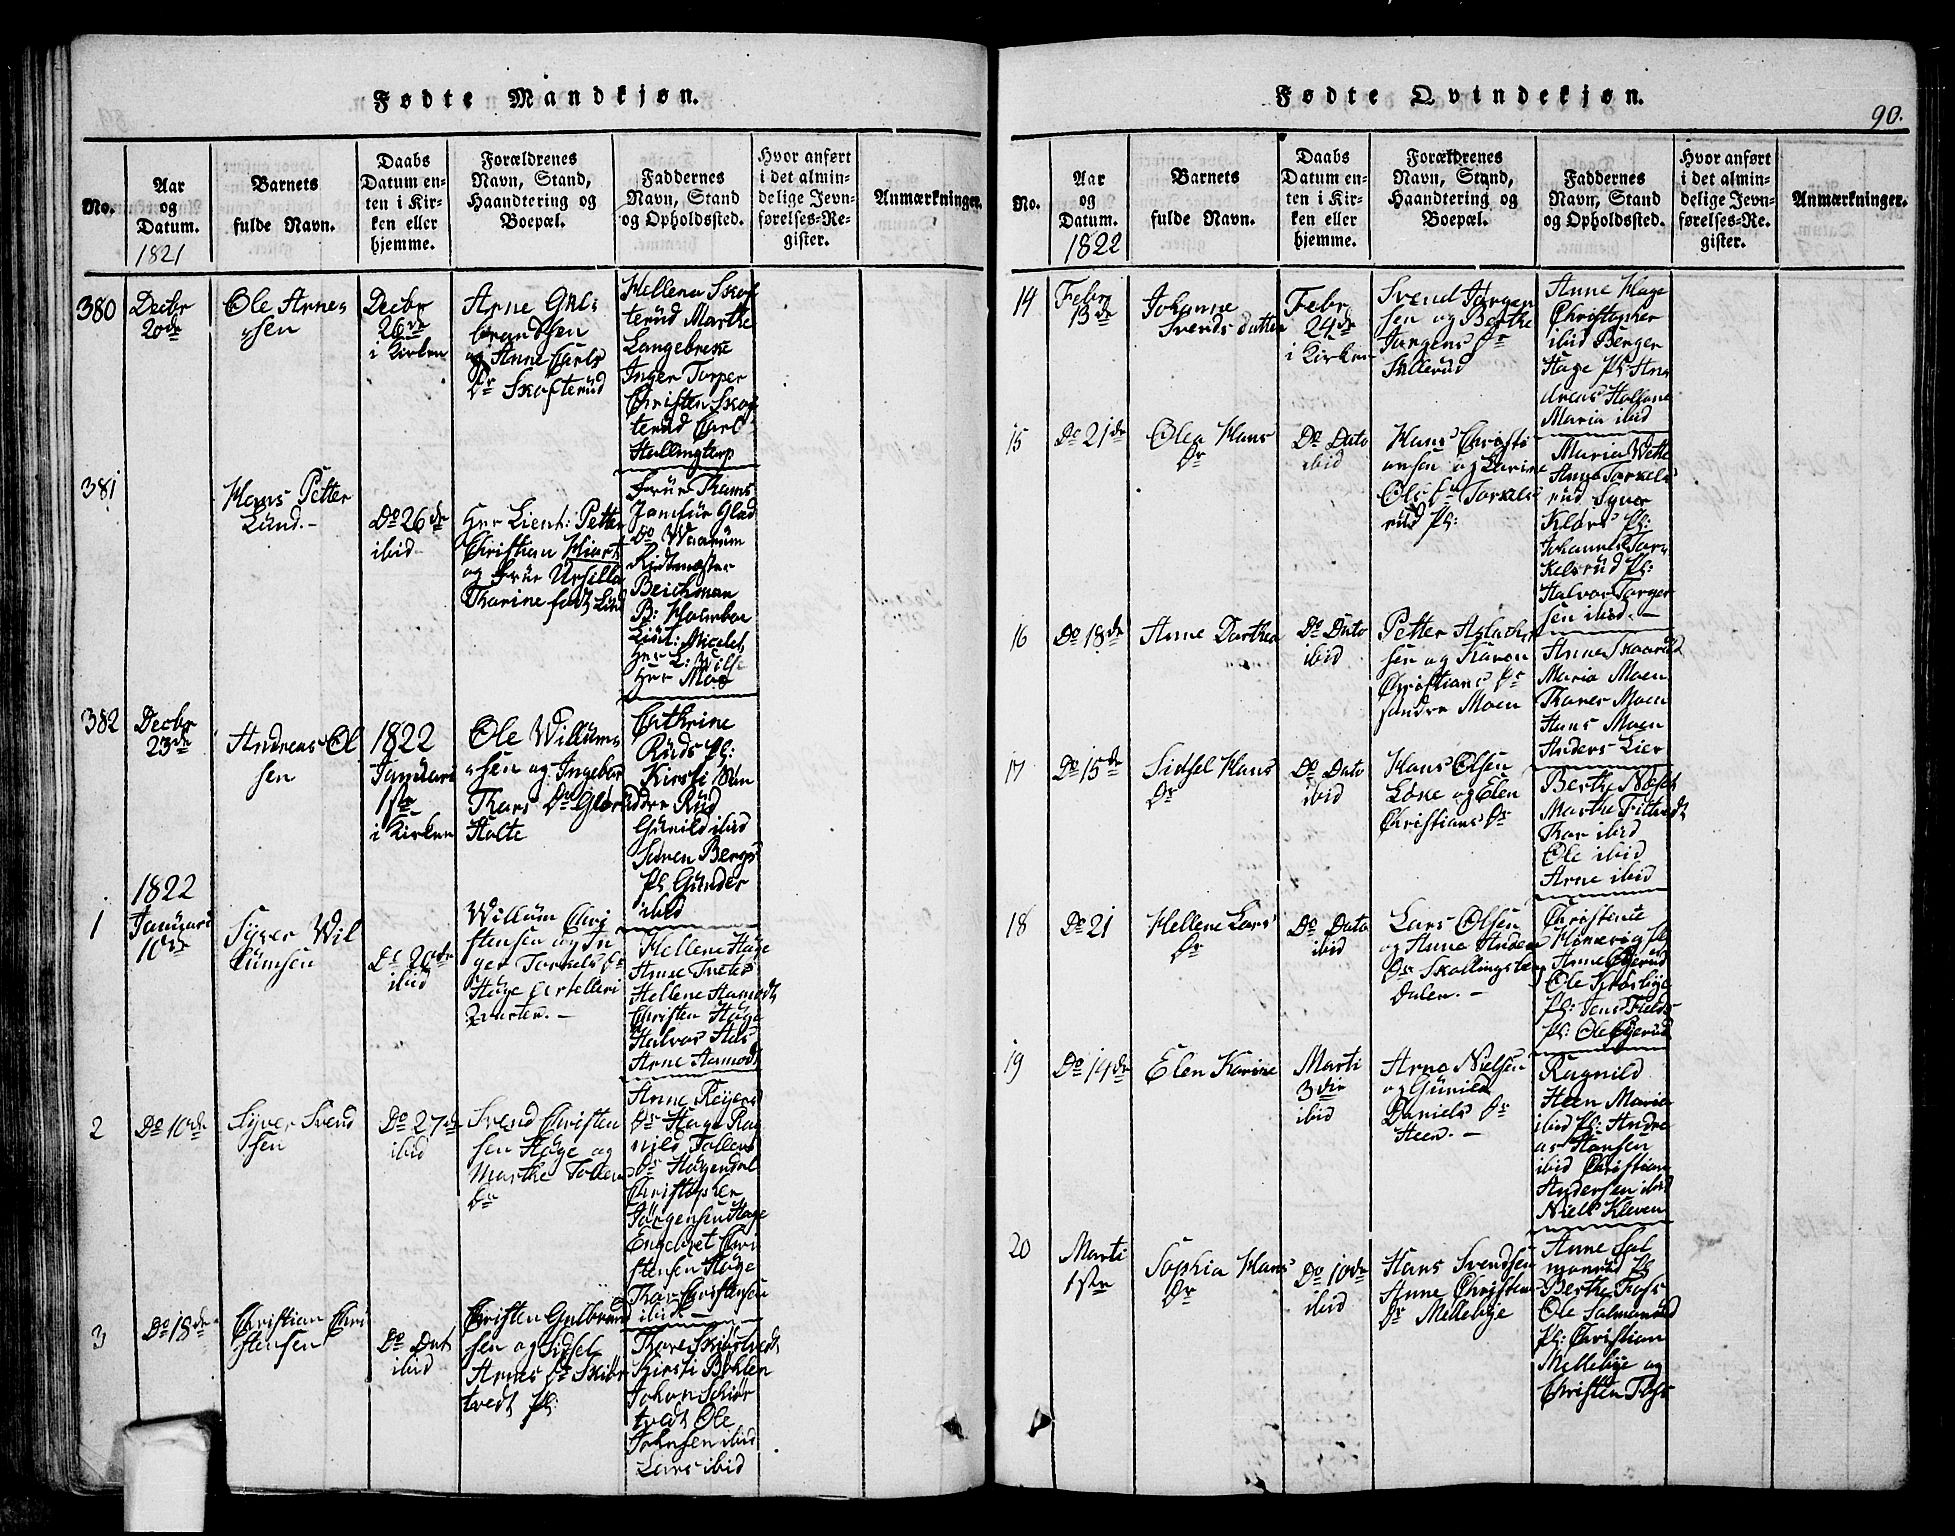 Fødte Mandkjøn.
No.
Aar
og
Datum.
1821
Barnets
fulde Navn.
Daabs
Datum en-
ten i Kir-
ken eller
hjemme.
Forældrenes
Navn, Stand,
Haandtering og
Boepæl.
Faddernes
Navn, Stand
og Opholdssted.
Hvor anført
i det almin-
delige Jevn-
førelses-Re-
gister.
Anmærkninger.
380
Decbr
20de
Ole Arne-
sen
Decbr
26de
i Kirken
Arne Gul-
brandsen
og Anne Carls
Dr Skofterud
Hellena Skof
terud Marthe
Langebreke
Inger Torper
Christen Skof
terud Carl
Hallingtorp
381
Hans Petter
Lund.-
Do 26de
ibid
Her Lieut: Petter
Christian Hiort
og Frue Ursilla
Tharine født Lund
Frue Thams
Jomfue Glad
Do Waarum
Ridtmester
Beichman
B: Holmboe
Lieut: Nicolet
Her L: Wilse
Her Moe
382
Decbr
23de
Andreas Ol
sen
1822
Januari
1ste
i Kirken
Ole Willums
sen og Ingebor
Thors Dr Glorud
Holte
Cathrine
Ruds Pl:
Kirsti Nor
dre Rud
Gunild ibid
Søren Bergs
Pl Gunder
ibid
1822
1
Januari
10de
Syver Wil
lumsen
Do 20de
ibid
Willum Chri
stensen og In
ger Torkels Dr
Hage Artelleri
Quarter.-
Hellene Hage
Anne Tveter
Hellene Aamodt
Christen Hage
Halvor Aas
Arne Aamodt
2
Do 10de
Syver Svend
sen
Do 27de
ibid
Svend Christen
sen Hage og
Marthe Tollens
Dr
Anne Reyers
Dr Hage Rag
nild Tollens
Dr Hagendal
Christopher
Jørgensen Hage
Engebret Chri
stensen Hage
Thor Christensen
ibid
3
Do 18de
Christian Chri
stensen
Do Dat
ibid
Christen Gulbrand
sen og Sidsel
Arnes Dr Skiør
tvedt Pl:
Thore Skiørtvedt
Kirsti Böhlen
Johan Skiør
tvedt Ole
Johnsen ibid
Lars ibid
Fødte Qvindekjøn.
90.
No.
Aar
og
Datum.
1822
Barnets
fulde Navn.
Daabs
Datum en-
ten i Kir-
ken eller
hjemme.
Forældrenes
Navn, Stand,
Haandtering og
Boepæl.
Faddernes
Navn, Stand
og Opholdssted.
Hvor anført
i det almin-
delige Jevn-
førelses-Re-
gister.
Anmærkninger.
14
Febr
13de
Johanne
Svends datter
Febr
24de
i Kirken
Svend Jørgen
sen og Berthe
Jørgens Dr
Sillerud
Anne Hage
Christopher
ibid Berger
Hage Pl: An
dreas
Maria ibid
15
Do 21de
Olea Hans
Dr
Do Dato
ibid
Hans Christi
ansen og Karine
Ols Dr Torkels
rud Pl:
Maria Wette
Anne Torkels
rud Syver
Pl:
Johannes Tor
kelsrud Pl:
Halvor Torger
sen ibid.-
16
Do 18de
Anne Dorthea
Do Dato
ibid
Petter Aslach
sen og Karen
Christians Dr
søndre Moen
Anne Skaarud
Maria Moen
Thores Moen
Hans Moen
Anders Lier
17
Do 15de
Sidsel Hans
Dr
Do Dato
ibid
Hans Olsen
Løne og Elen
Christians Dr
Berthe
Marthe
Thor ibid
Ole ibid
Arne ibid
18
Do 21
Hellene Lars
Dr
Do Dato
ibid
Lars Olsen
og Anne Anders
Dr Skollingsberg
Dalen.-
Christense
Pl
Anne Egerud
Ole
Pl: Jens Fields
Pl: Ole Egerud
19
Do 14de
Elen Karine
Marti
3die
ibid
Arne Nielsen
og Gunild
Daniels Dr
Heen.-
Ragnild
Heen Maria
ibid Pl: Andre
as Hansen
ibid Christian
Andersen ibid
Niels Kleven
20
Marti
1ste
Sophia Hans
Dr
Do 10de
ibid
Hans Svendsen
Anne Christens
Dr Mellebye
Anne Sal
monrud Pl
Berthe Foss
Ole Salmonrud
Pl: Christian
Mellebye og
Christen Foss